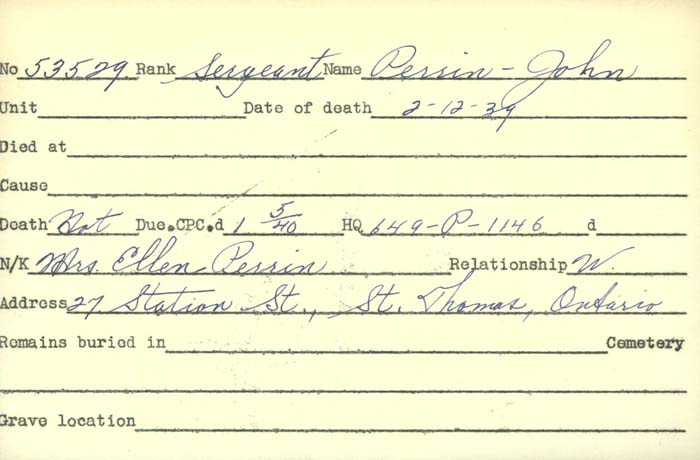 No 53529 Rank Sergeant Name Perrin - John
Unit Date of death 2-12-39
Died at
Cause
Death Not Due.CPC.d 1 5/40 HQ 649-P-1146 d
N/K Mrs. Ellen Perrin Relationship W.
Address 27 Station St., St. Thomas, Ontario
Remains buried in Cemetery
Grave location